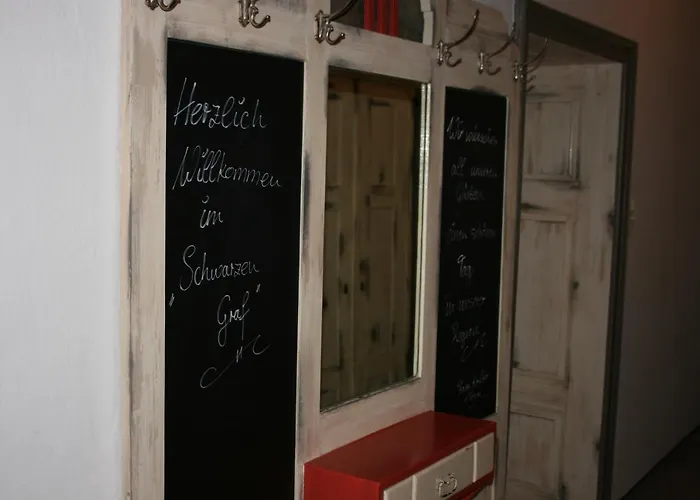 Herzlich
Willkommen
im
Schwarzen
"Graf"
Wir wünschen
all unseren
Gästen
einen schönen
Tag
in unserer